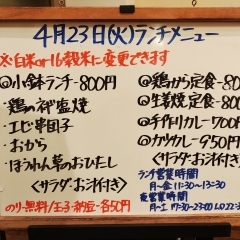 4月23日(火)ランチメニュー
※白米or16穀米に変更できます
◎小鉢ランチ-800円
・鶏の神塩焼
・エビ串団子
・おから
・ほうれん草のおひたし
〈サラダ・お汁付き〉
のり-無料/玉子・納豆-各50円
◎鶏から定食-800円
◎生姜焼定食-800円
◎チキンカレー700円
◎カツカレー950円
〈サラダ・お汁付き〉
ランチ営業時間
月~金 11:30~13:30
夜営業時間
月~土 17:30~23:00